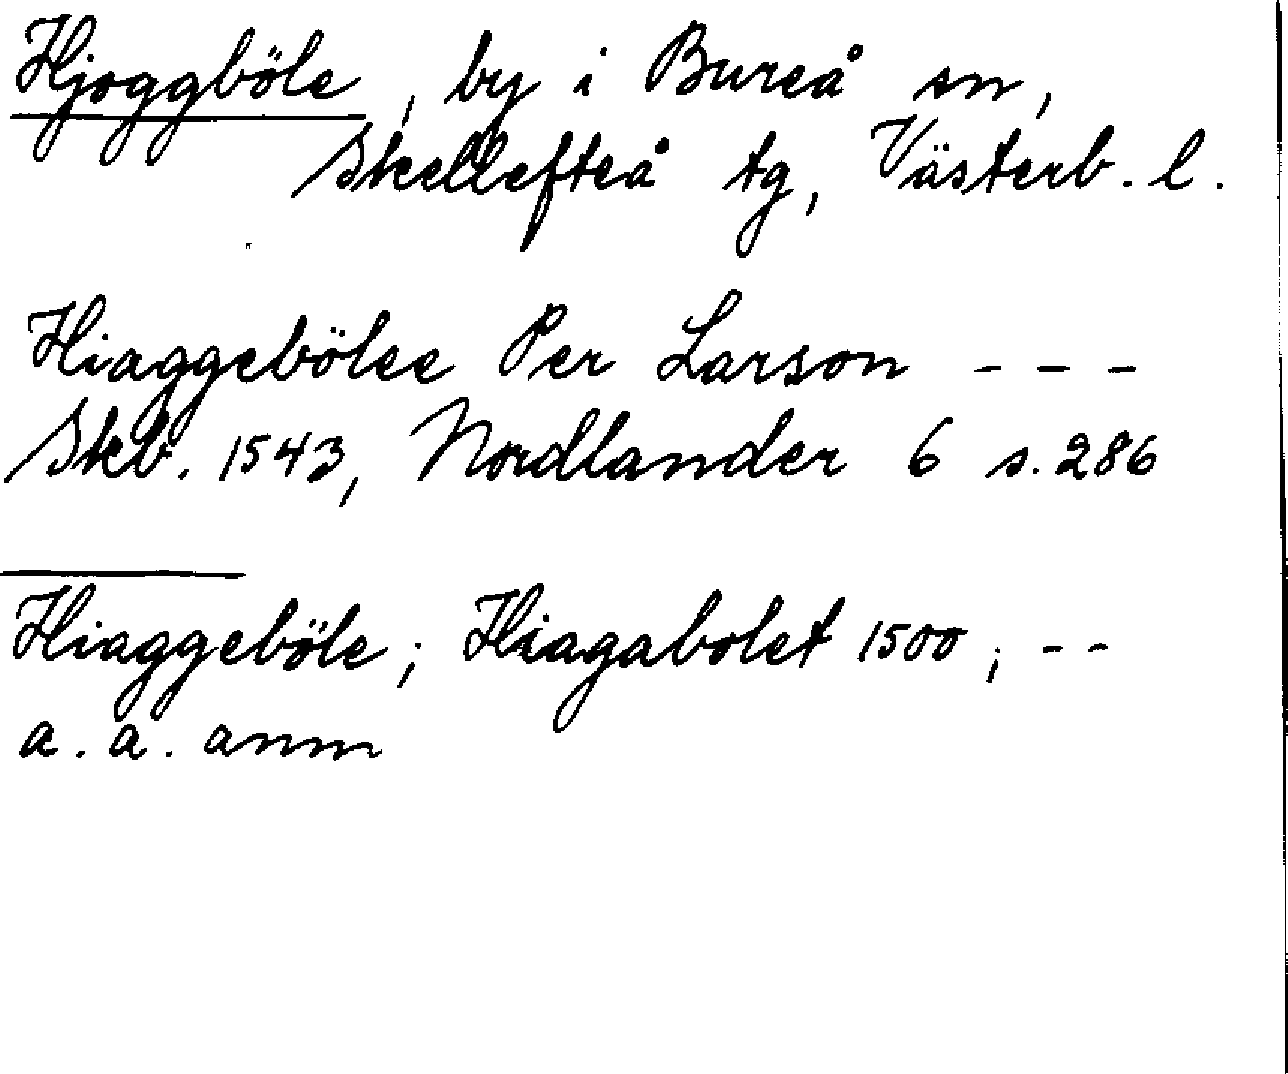 Hjoggböle, by i Bureå sn,
Skellefteå tg, Västerb. l.
Hiaggebölee Per Larson - - -
Skb. 1543, Nordlander 6 s. 286
Hiaggeböle; Hiagabolet 1500; - -
a. a. anm